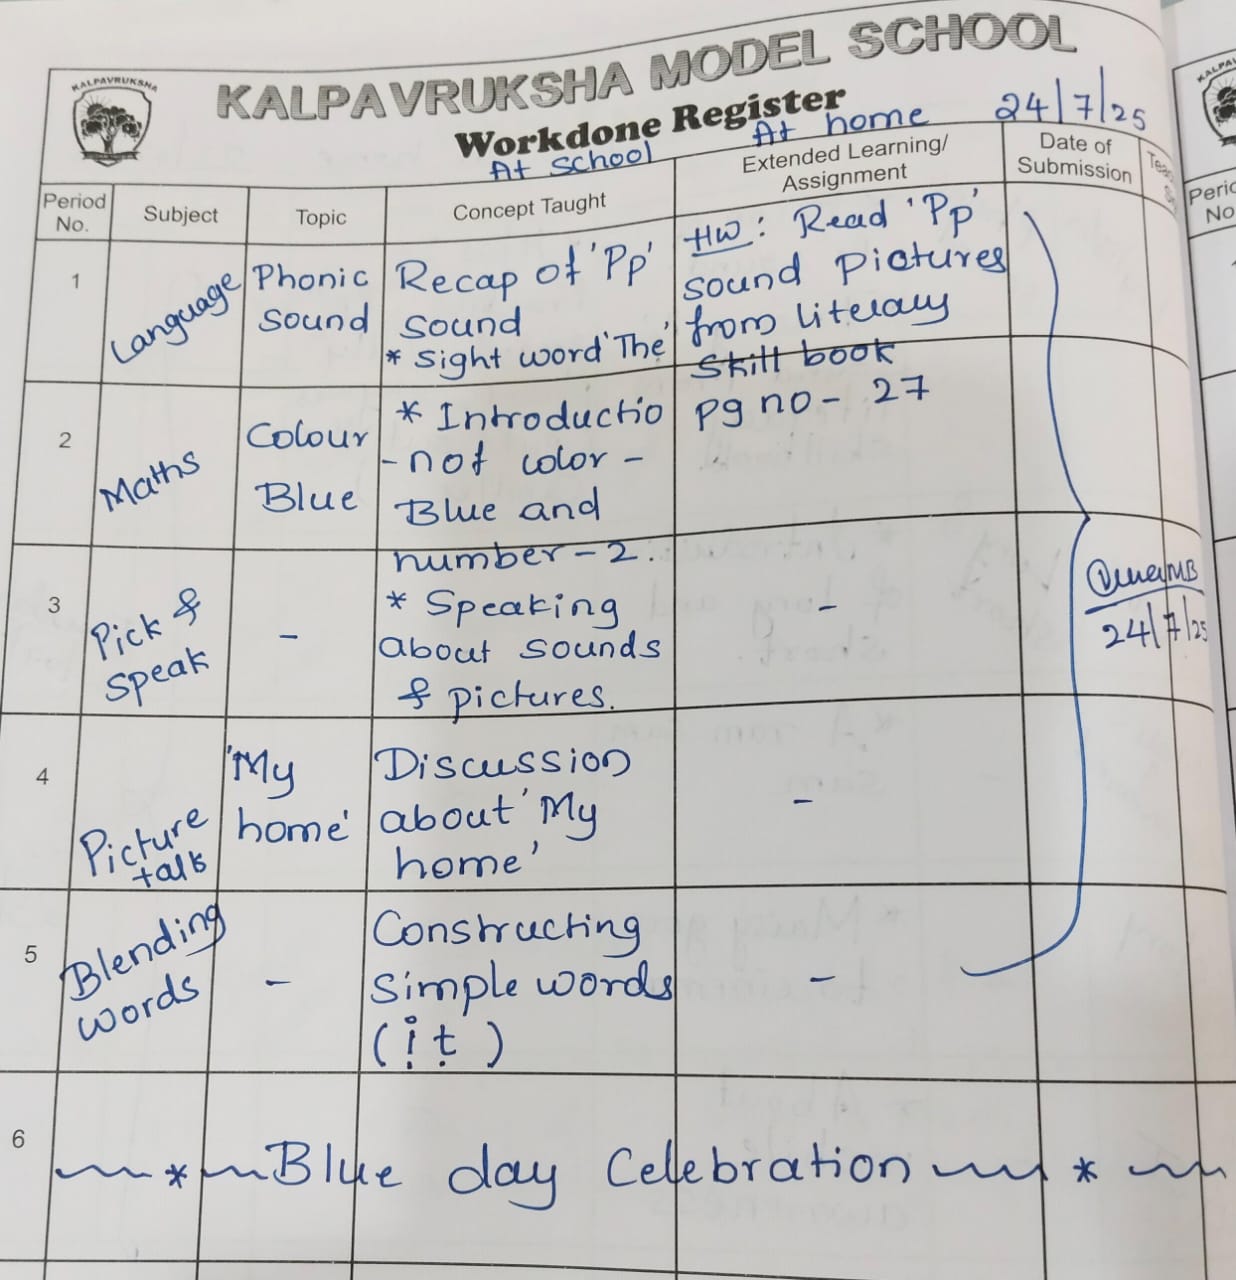 KALPAVRUKSHA
KALPAVRUKSHA MODEL SCHOOL
Workdone Register
24/7/25
At school
At home
Period No.
Subject
Topic
Concept Taught
Extended Learning/
Assignment
Date of
Submission
1
Language
Phonic
sound
Recap of 'Pp'
sound
* Sight word 'The'
HW: Read 'Pp'
sound Pictures
from literacy
skill book
pg no- 27
2
Maths
Colour
Blue
* Introductio
-n of color -
Blue and
number - 2.
3
Pick &
speak
-
* Speaking
about sounds
& pictures.
-
24/7/25
4
Picture
talk
'My
home'
Discussion
about 'My
home'
-
5
Blending
words
-
Constructing
Simple words
(it)
-
6
* Blue day Celebration *
Perio
No